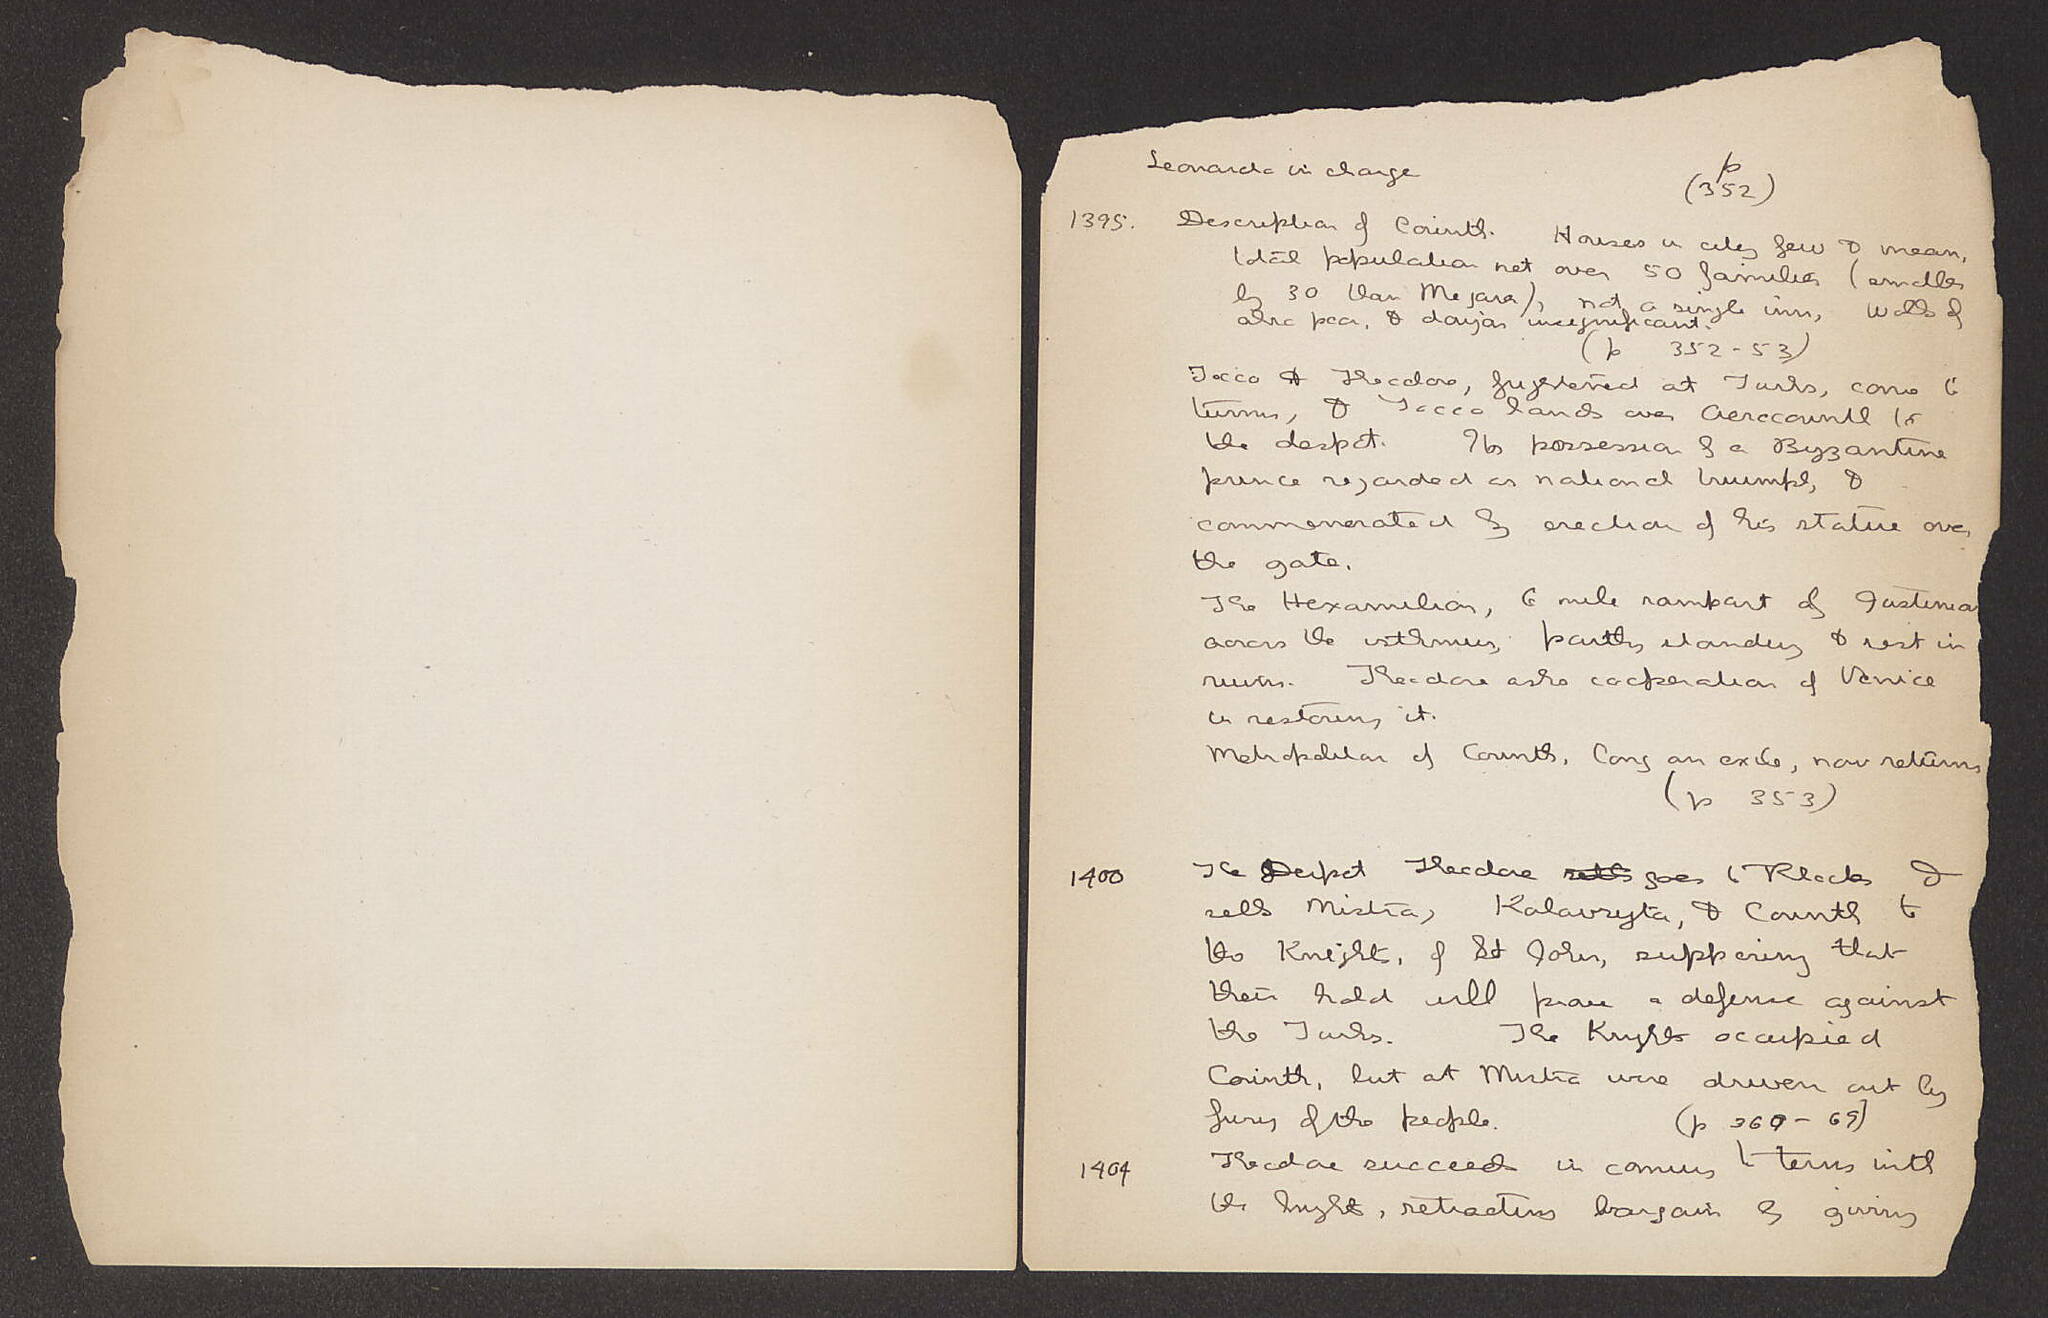 Leonardo in charge
p
(352)
1395. Description of Corinth. Houses in city few & mean,
total population not over 50 families (smaller
by 30 than Megara), not a single inn, Walls of
also poor, & donjon insignificant.
(p 352-53)
Tocco & Theodore, frightened at Turks, come to
terms, & Tocco hands over Acrocorinth to
the despot. Its possession by a Byzantine
prince regarded as national triumph, &
commemorated by erection of his statue over
the gate.
The Hexamilion, 6 mile rampart of Justinian
across the isthmus, partly standing & rest in
ruins. Theodore asks cooperation of Venice
in restoring it.
Metropolitan of Corinth, long an exile, now returns
(p 353)
1400 The Despot Theodore sells goes to Rhodes &
sells Mistra, Kalavryta, & Corinth to
the Knights of St John, supposing that
their hold will prove a defense against
the Turks. The Knights occupied
Corinth, but at Mistra were driven out by
fury of the people. (p 368-69)
1404 Theodore succeeds in coming to terms with
the knights, retracting bargain by giving